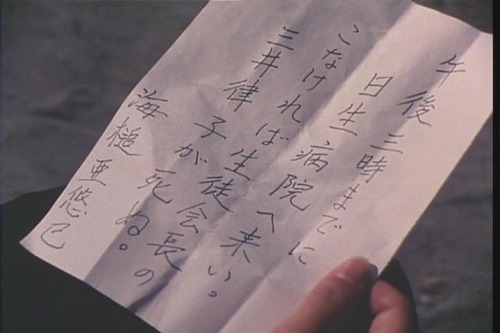 午後三時までに
日生病院へ来い。
こなければ生徒会長の
三井律子が死ぬ。
海槌亜悠巳